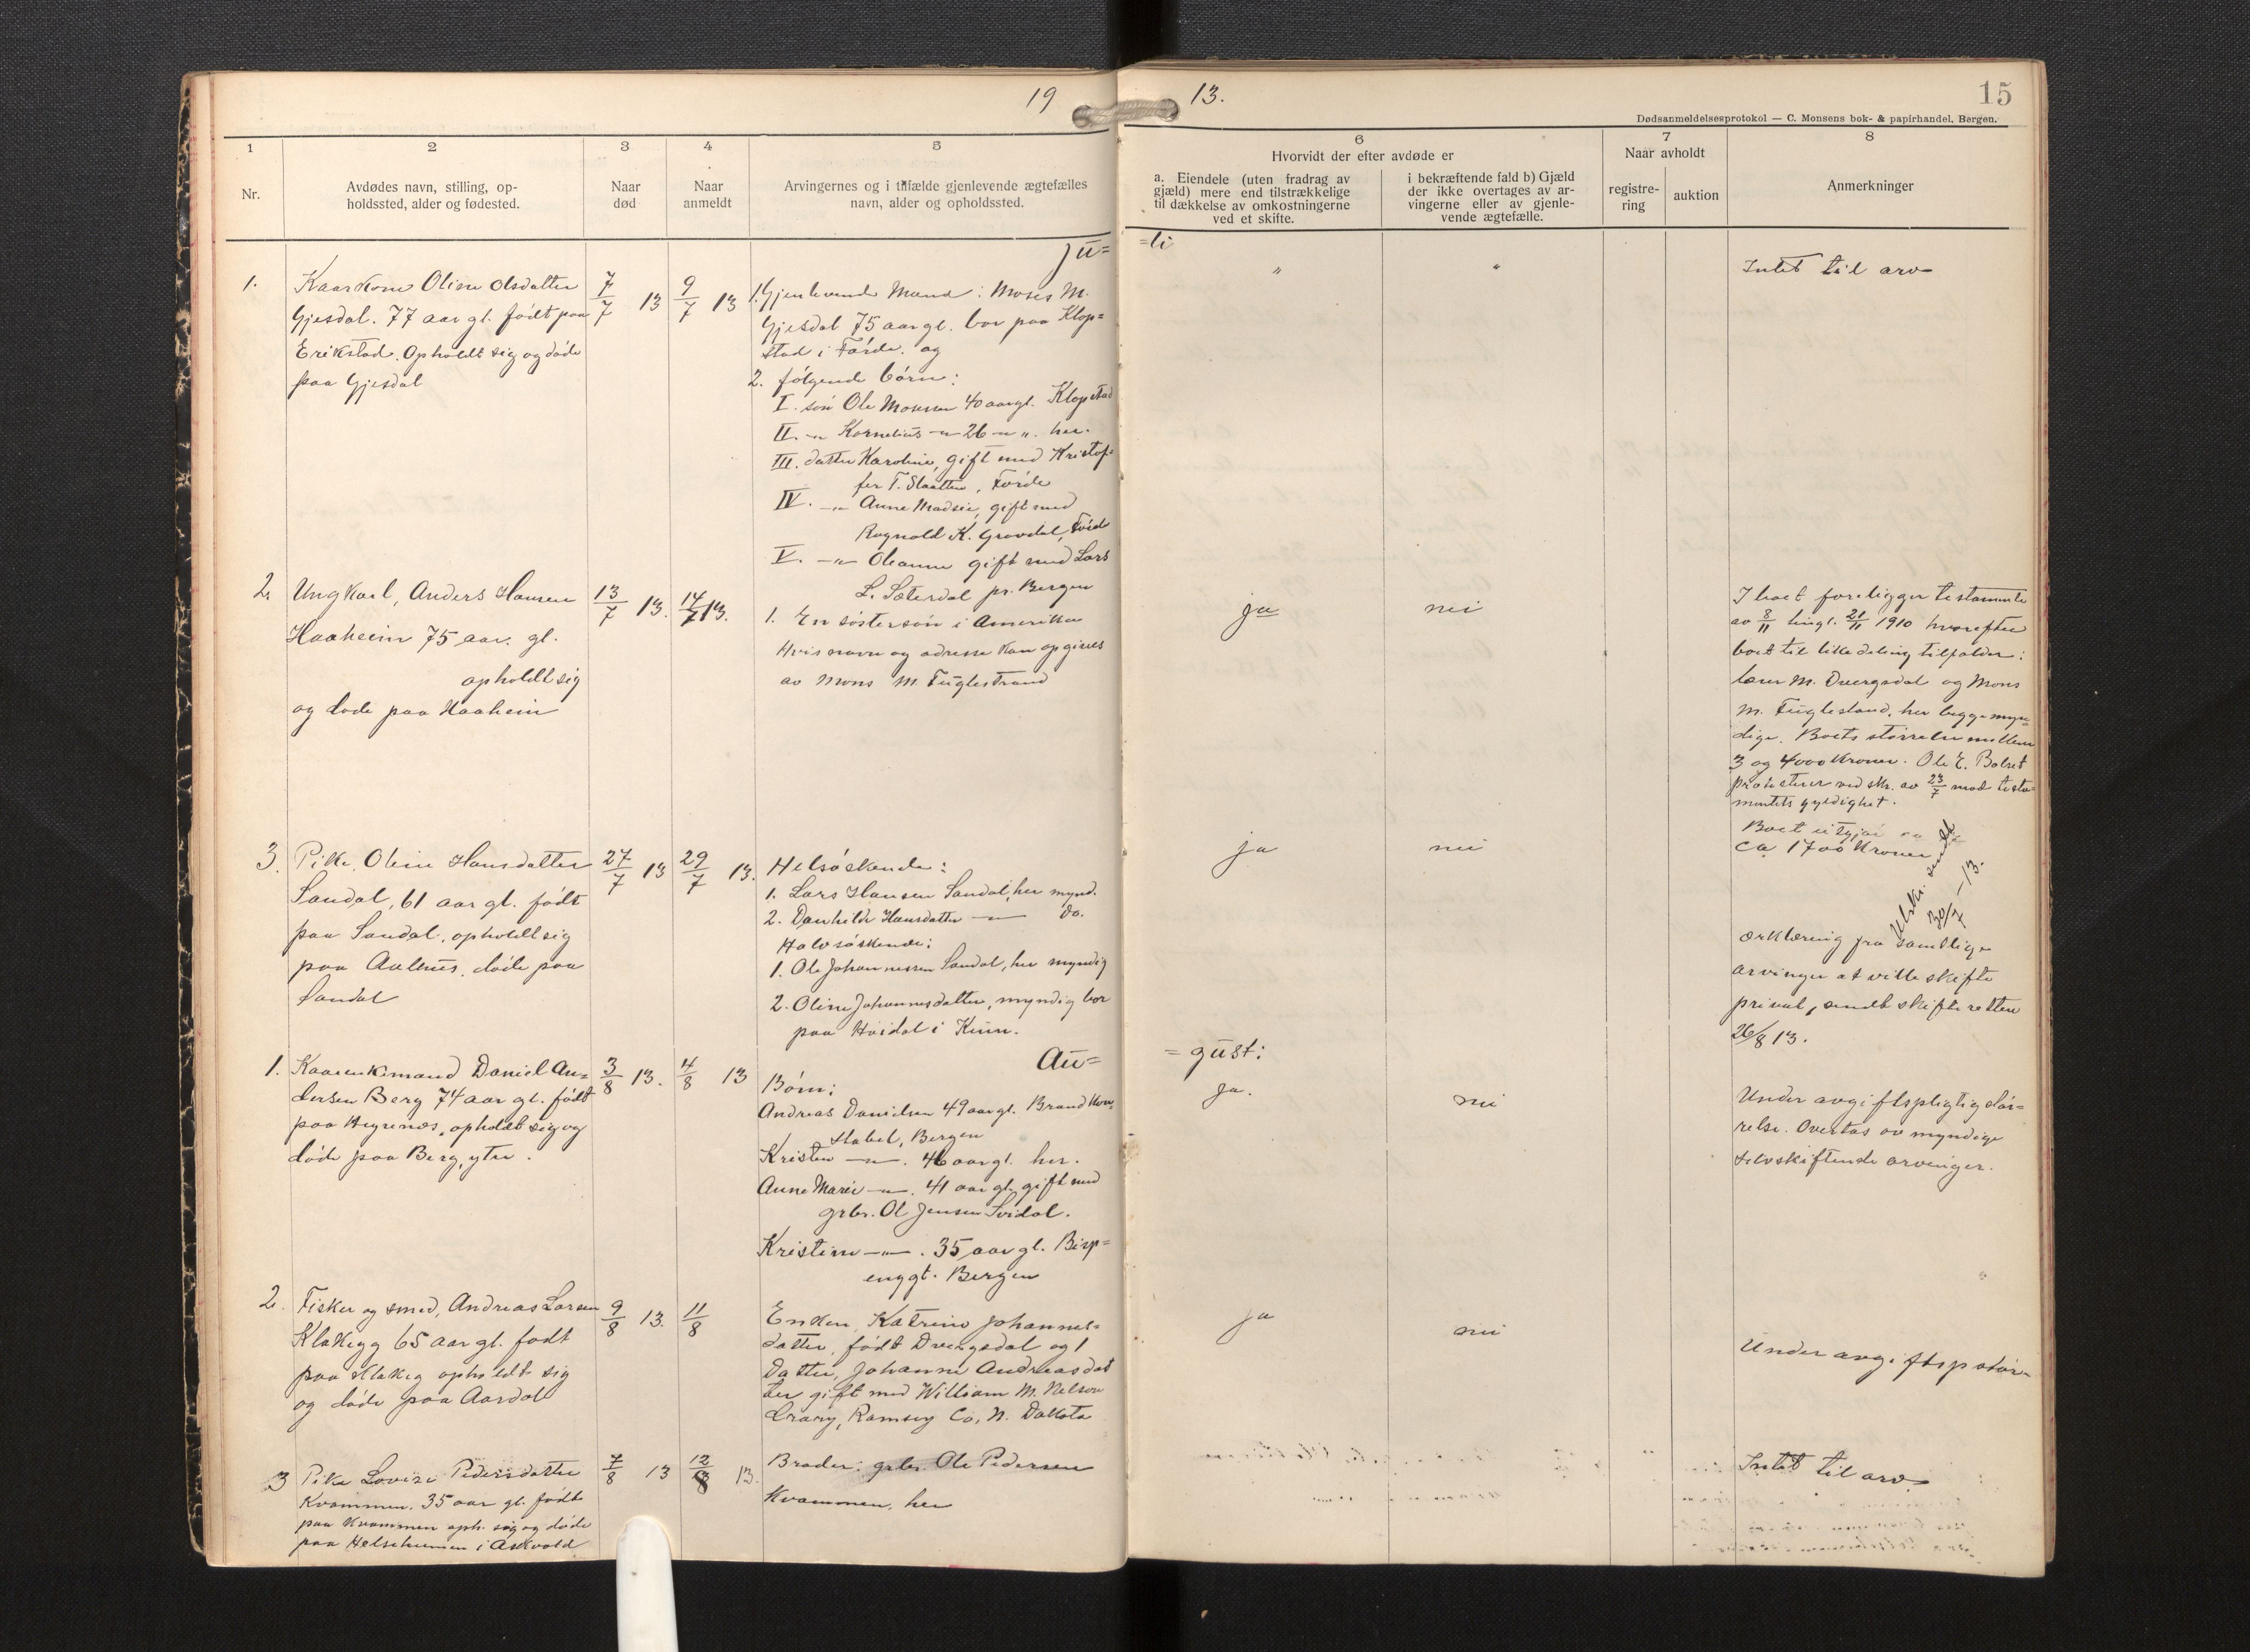 19
13.
15
Dødsanmeldelsesprotokol — C. Monsens bok- & papirhandel, Bergen.
1
Nr.
2
Avdødes navn, stilling, op-
holdssted, alder og fødested.
3
Naar
død
4
Naar
anmeldt
5
Arvingernes og i tilfælde gjenlevende ægtefælles
navn, alder og opholdssted.
6
Hvorvidt der efter avdøde er
a. Eiendele (uten fradrag av
gjæld) mere end tilstrækkelige
til dækkelse av omkostningerne
ved et skifte.
i bekræftende fald b) Gjæld
der ikke overtages av ar-
vingerne eller av gjenle-
vende ægtefælle.
7
Naar avholdt
registre-
ring
auktion
8
Anmerkninger
Ju=
=li
1.
Kaarkone Oline Olsdatter
Gjesdal. 77 aar gl. født paa
Erikstad. Opholdt sig og døde
paa Gjesdal
7/7 13
9/7 13
1. Gjenlevende Mand: Moses M.
Gjesdal 75 aar gl. bor paa Klop=
stad i Førde. og
2. følgende børn:
I. søn Ole Mosessen 40 aar gl. Klopstad
II. -"- Kornelius -"- 26 -"- ". her.
III. datter Karoline, gift med Kristof=
fer T. Slaatten, Førde
IV. -"- Anne Madsie, gift med
Ragnald K. Grovdal, Førde
V. -"- Oleanne gift med Lars
L. Sæterdal pr. Bergen
"
"
Intet til arv
2.
Ungkarl, Anders Hansen
Haaheim 75 aar. gl.
opholdt sig
og døde paa Haaheim
13/7 13.
14/7 13.
1. En søstersøn i Amerika
Hvis navn og adresse kan opgives
av Mons M. Fuglestrand
ja
nei
I boet foreligger testamente
av 8/11 tingl. 21/11 1910 hvorefter
boet til like deling tilfalder:
M. Dvergsdal og Mons
M. Fuglesland, her begge myn=
dige. Boets størrelse mellem
3 og 4000 Kroner. Ole E. Bolset
protesterer ved skr. av 23/7 mod testa=
mentets gyldighet.
Boet utgjør
ca 1700 Kroner
Utskr. sendt
30/7 -13.
3.
Pike, Oline Hansdatter
Sandal, 61 aar gl. født
paa Sandal, opholdt sig
paa Aalhus, døde paa
Sandal
27/7 13
29/7 13.
Helsøskende:
1. Lars Hansen Sandal, her mynd.
2. Danhilde Hansdatter -"- do.
Halvsøskende:
1. Ole Johannessen Sandal, her myndig
2. Oline Johannesdatter, myndig bor
paa Høidal i Kinn.
ja
nei
Erklæring fra samtlige
arvinger at ville skifte
privat, sendt skifteretten
26/8 13.
Au=
= gust:
1.
Kaarenkemand Daniel An=
dersen Berg 74 aar gl. født
paa Heyrenes, opholdt sig og
døde paa Berg, ytre.
3/8 13.
4/8 13
Børn:
Andreas Danielsen 49 aar gl. Brandkon=
stabel, Bergen
Kristen -"-. 46 aar gl. her.
Anne Marie -"-. 41 aar gl. gift med
grbr. Ol Jensen Svidal.
Kristine -"-. 35 aar gl. Bisp=
enggt. Bergen
Ja.
nei
Under avgiftspligtig stør=
relse. Overtas av myndige
selvskiftende arvinger.
2.
Fisker og smed, Andreas Larsen
Klakegg 65 aar gl. født
paa Klakeg opholdt sig
og døde paa Aardal
9/8 13.
11/8
Enken, Katrine Johannes=
datter, født Dvergsdal og 1
Datter, Johanne Andreasdat
ter gift med William M. Nelson
Crary, Ramsey Co, N. Dakota
ja
nei
Under avgiftsp stør-
3
Pike Lovise Pedersdatter
Kvammen, 35 aar gl. født
paa Kvammen oph. sig og døde
paa Helsehemen i Askvold
7/8 13
12/8 13.
Broder: grbr. Ole Pedersen
Kvammen, her
Intet til arv.